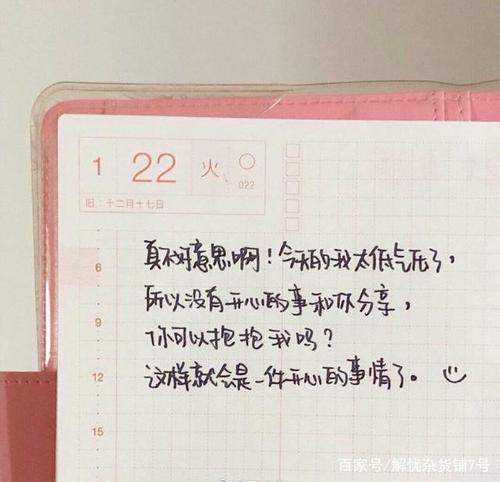 1 22 火
022
旧:十二月十七日
6
真不好意思啊!今天的我太低气压了,
所以没有开心的事和你分享,
9
你可以抱抱我吗?
12
这样就会是一件开心的事情了。
15
百家号/解忧杂货铺7号